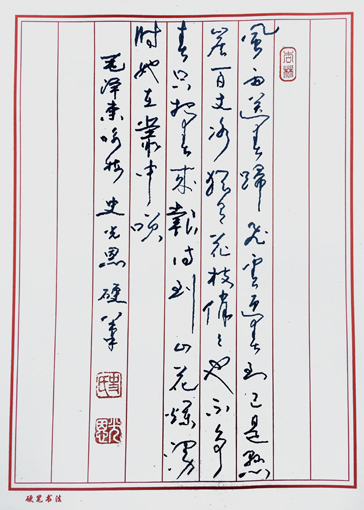 風雨送春歸飞雪迎春到已是懸
崖百丈冰猶有花枝俏〻也不争
春只把春来報待到山花爛漫
时她在叢中咲
毛泽东咏梅 史光恩 硬筆
史氏
光恩
硬笔书法